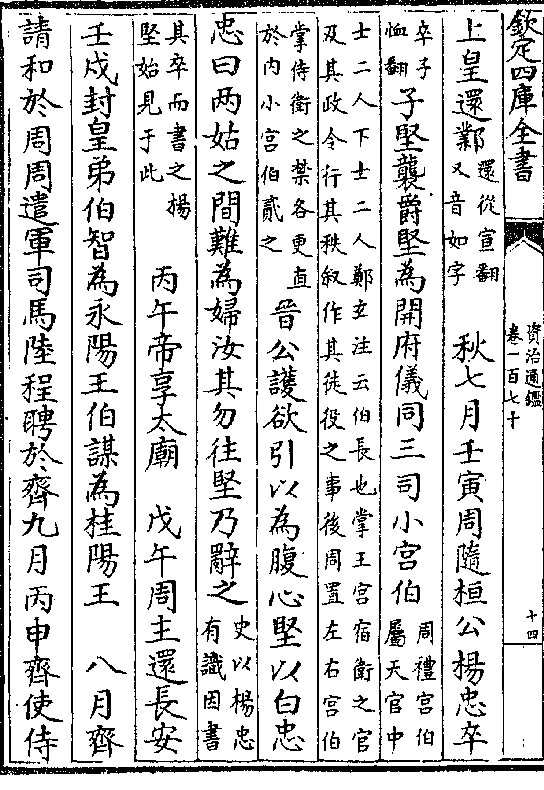 欽定四庫全書
資治通鑑
卷一百七十
十四
上皇還鄴還從宣翻又音如字 秋七月壬寅周隨桓公楊忠卒
卒子恤翻子堅襲爵堅為開府儀同三司小宫伯周禮宫伯屬天官中
士二人下士二人鄭玄注云伯長也掌王宫宿衛之官
及其政令行其秩叙作其徒役之事後周置左右宫伯
掌侍衛之禁各更直於内小宫伯貳之 晉公護欲引以為腹心堅以白忠
忠曰两姑之間難為婦汝其勿往堅乃辭之史以楊忠有識因書
其卒而書之楊堅始見于此 丙午帝享太廟 戊午周主還長安
壬戌封皇弟伯智為永陽王伯謀為桂陽王 八月齊
請和於周周遣軍司馬陸程聘於齊九月丙申齊使侍